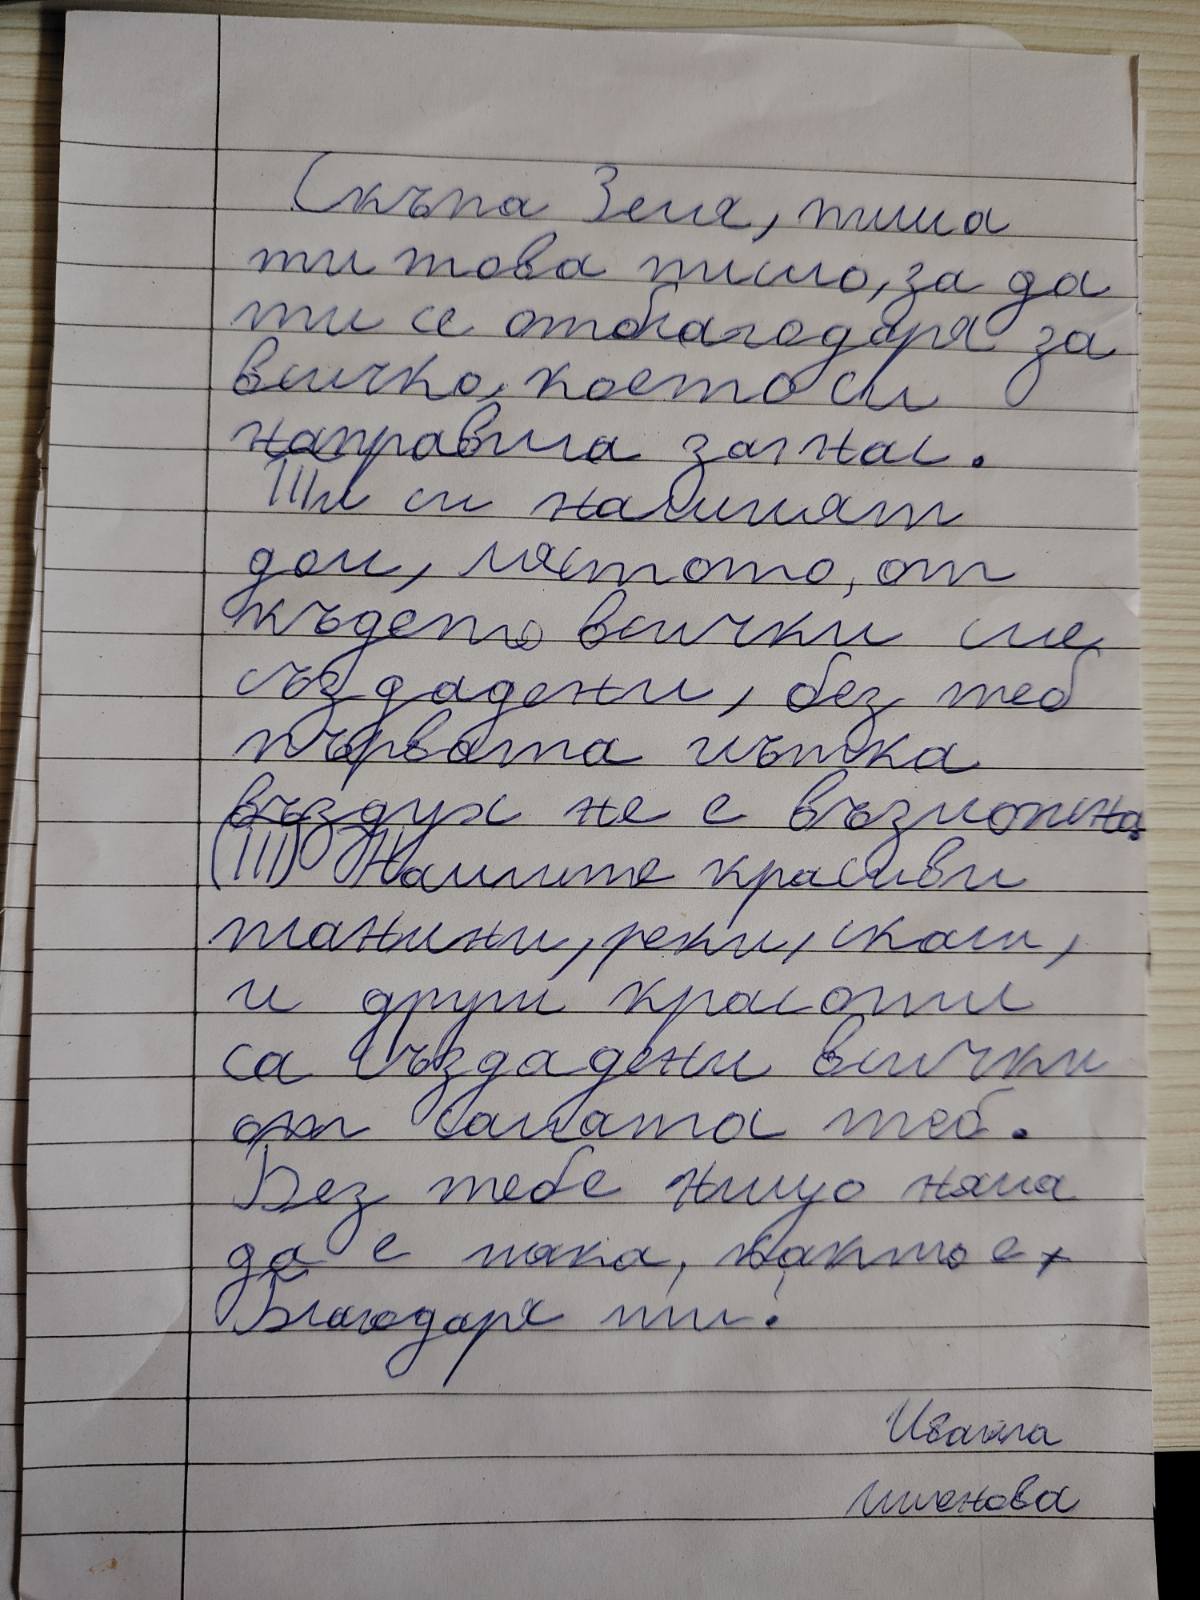 Скъпа Земя, пиша
ти това писмо, за да
ти се отблагодаря за
всичко, което си
направила за нас.
Ти си нашият
дом, мястото, от
където всички сме
създадени, без теб
първата глътка
въздух не е възможна.
Нашите красиви
планини, реки, скали,
и други красоти
са създадени всички
от самата теб.
Без тебе нищо няма
да е така, както е.
Благодаря ти!
Ивайла